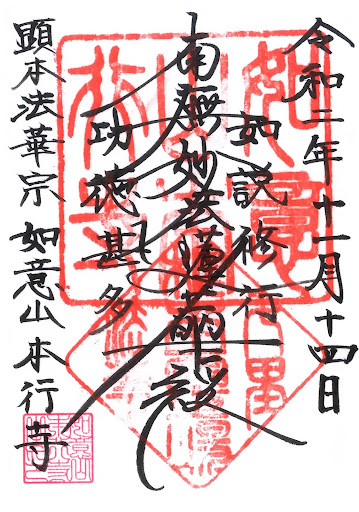 令和二年十一月十四日
如説修行
南無妙法蓮華経
功徳甚多
顕本法華宗 如意山 本行寺